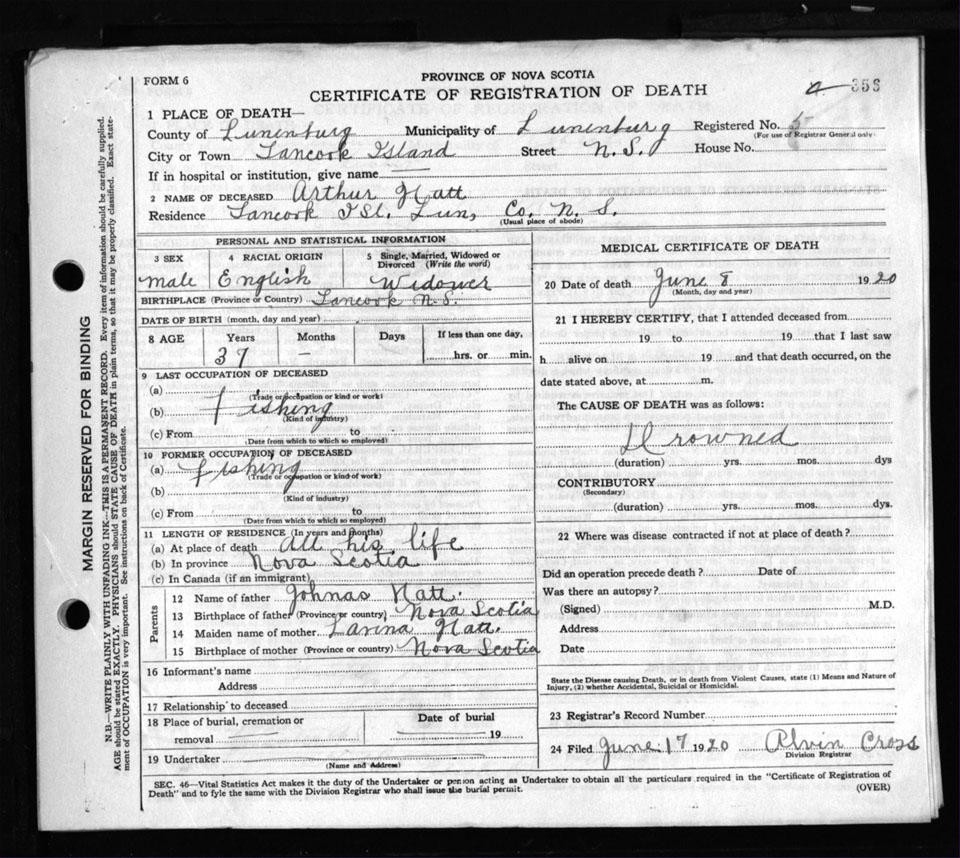 FORM 6
PROVINCE OF NOVA SCOTIA
CERTIFICATE OF REGISTRATION OF DEATH
356
1 PLACE OF DEATH—
County of Lunenburg Municipality of Lunenburg Registered No. 5
(For use of Registrar General only)
City or Town Tancook Island Street N. S. House No.
If in hospital or institution, give name
2 NAME OF DECEASED Arthur Hatt
Residence Tancook Isl. Lun, Co. N. S.
(Usual place of abode)
PERSONAL AND STATISTICAL INFORMATION
3 SEX 4 RACIAL ORIGIN 5 Single, Married, Widowed or Divorced (Write the word)
male English Widower
BIRTHPLACE (Province or Country) Tancook N.S.
DATE OF BIRTH (month, day and year)
8 AGE Years Months Days If less than one day,
37 — hrs. or min.
9 LAST OCCUPATION OF DECEASED
(a)
(Trade or occupation or kind or work)
(b) fishing
(Kind of industry)
(c) From to
(Date from which to which so employed)
10 FORMER OCCUPATION OF DECEASED
(a) fishing
(Trade or occupation or kind of work)
(b)
(Kind of industry)
(c) From to
(Date from which to which so employed)
11 LENGTH OF RESIDENCE (In years and months)
(a) At place of death all his life
(b) In province Nova Scotia
(c) In Canada (if an immigrant)
Parents
12 Name of father Johnas Hatt.
13 Birthplace of father (Province or country) Nova Scotia
14 Maiden name of mother Lavina Hatt.
15 Birthplace of mother (Province or country) Nova Scotia
16 Informant's name
Address
17 Relationship to deceased
18 Place of burial, cremation or removal Date of burial
19
19 Undertaker
(Name and Address)
MEDICAL CERTIFICATE OF DEATH
20 Date of death June 8 1920
(Month, day and year)
21 I HEREBY CERTIFY, that I attended deceased from
19 to 19 that I last saw
h alive on 19 and that death occurred, on the
date stated above, at m.
The CAUSE OF DEATH was as follows:
Drowned
(duration) yrs. mos. dys
CONTRIBUTORY
(Secondary)
(duration) yrs. mos. dys.
22 Where was disease contracted if not at place of death?
Did an operation precede death? Date of
Was there an autopsy?
(Signed) M.D.
Address
Date
State the Disease causing Death, or in death from Violent Causes, state (1) Means and Nature of
Injury, (2) whether Accidental, Suicidal or Homicidal.
23 Registrar's Record Number
24 Filed June 17 1920 Alvin Cross
Division Registrar
SEC. 46—Vital Statistics Act makes it the duty of the Undertaker or person acting as Undertaker to obtain all the particulars required in the "Certificate of Registration of
Death" and to fyle the same with the Division Registrar who shall issue the burial permit.
(OVER)
MARGIN RESERVED FOR BINDING
N.B.—WRITE PLAINLY WITH UNFADING INK—THIS IS A PERMANENT RECORD. Every item of information should be carefully supplied.
AGE should be stated EXACTLY. PHYSICIANS should STATE CAUSE OF DEATH in plain terms, so that it may be properly classified. Exact state-
ment of OCCUPATION is very important. See instructions on back of Certificate.